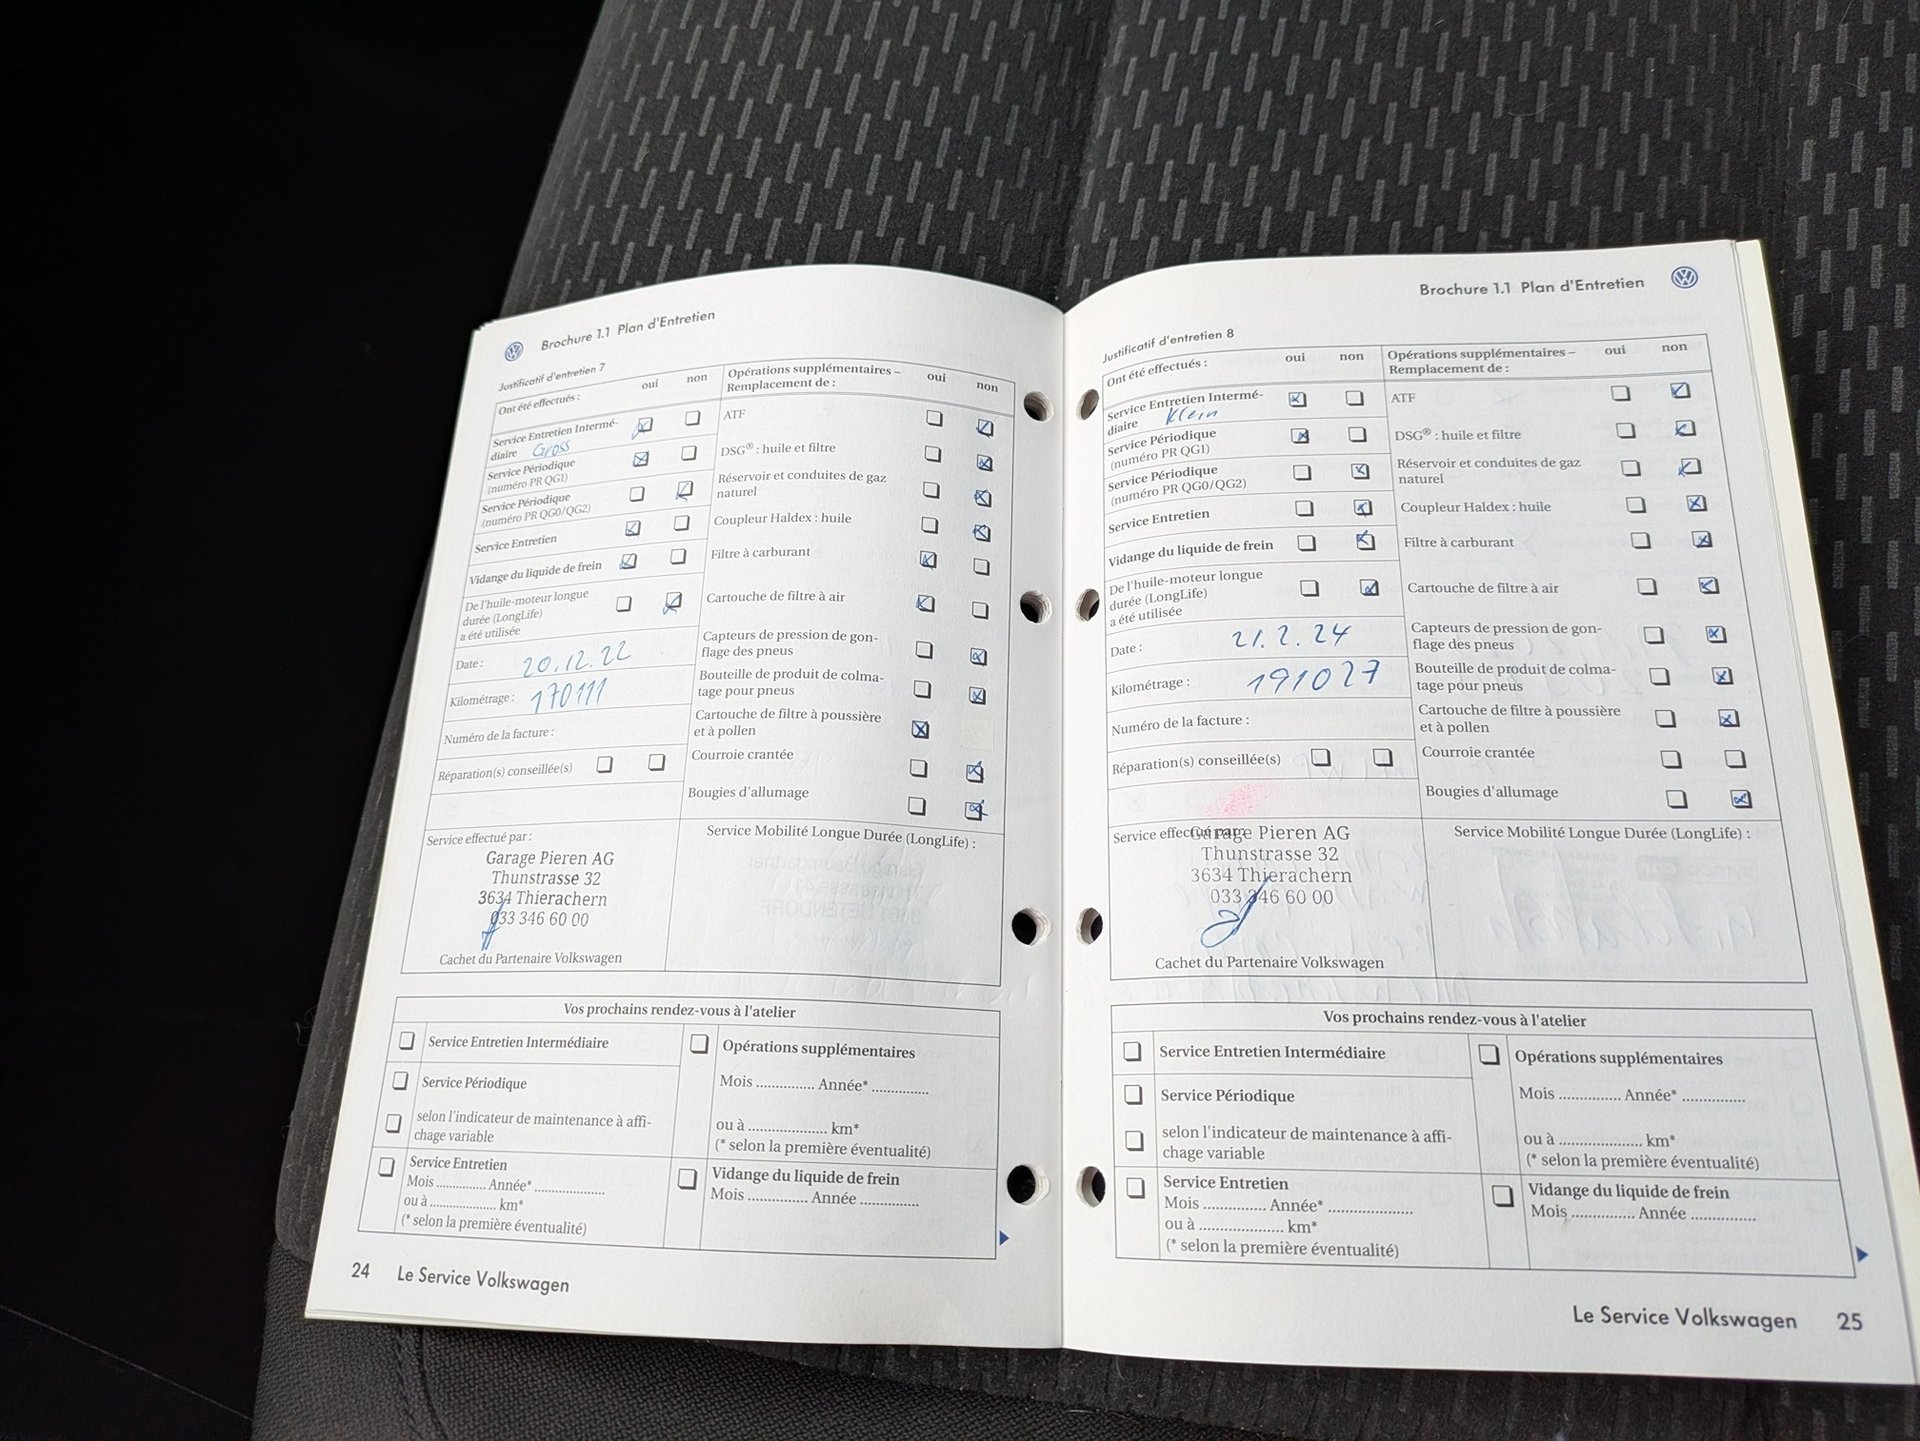 Brochure 1.1 Plan d'Entretien
Justificatif d'entretien 7
Ont été effectués :
oui
non
Service Entretien Intermé-
diaire Gross
Service Périodique
(numéro PR QG1)
Service Périodique
(numéro PR QG0/QG2)
Service Entretien
Vidange du liquide de frein
De l'huile-moteur longue
durée (LongLife)
a été utilisée
Date : 20.12.22
Kilométrage : 170111
Numéro de la facture :
Réparation(s) conseillée(s)
Opérations supplémentaires –
Remplacement de :
oui
non
ATF
DSG® : huile et filtre
Réservoir et conduites de gaz
naturel
Coupleur Haldex : huile
Filtre à carburant
Cartouche de filtre à air
Capteurs de pression de gon-
flage des pneus
Bouteille de produit de colma-
tage pour pneus
Cartouche de filtre à poussière
et à pollen
Courroie crantée
Bougies d'allumage
Service effectué par :
Garage Pieren AG
Thunstrasse 32
3634 Thierachern
033 346 60 00
Cachet du Partenaire Volkswagen
Service Mobilité Longue Durée (LongLife) :
Vos prochains rendez-vous à l'atelier
Service Entretien Intermédiaire
Service Périodique
selon l'indicateur de maintenance à affi-
chage variable
Service Entretien
Mois .............. Année* ..................
ou à ..................... km*
(* selon la première éventualité)
Opérations supplémentaires
Mois ............... Année* ...............
ou à .................... km*
(* selon la première éventualité)
Vidange du liquide de frein
Mois ............... Année ...............
24 Le Service Volkswagen
Brochure 1.1 Plan d'Entretien
Justificatif d'entretien 8
Ont été effectués :
oui
non
Service Entretien Intermé-
diaire Klein
Service Périodique
(numéro PR QG1)
Service Périodique
(numéro PR QG0/QG2)
Service Entretien
Vidange du liquide de frein
De l'huile-moteur longue
durée (LongLife)
a été utilisée
Date : 21.2.24
Kilométrage : 191027
Numéro de la facture :
Réparation(s) conseillée(s)
Opérations supplémentaires –
Remplacement de :
oui
non
ATF
DSG® : huile et filtre
Réservoir et conduites de gaz
naturel
Coupleur Haldex : huile
Filtre à carburant
Cartouche de filtre à air
Capteurs de pression de gon-
flage des pneus
Bouteille de produit de colma-
tage pour pneus
Cartouche de filtre à poussière
et à pollen
Courroie crantée
Bougies d'allumage
Service effectué par :
Garage Pieren AG
Thunstrasse 32
3634 Thierachern
033 346 60 00
Cachet du Partenaire Volkswagen
Service Mobilité Longue Durée (LongLife) :
Vos prochains rendez-vous à l'atelier
Service Entretien Intermédiaire
Service Périodique
selon l'indicateur de maintenance à affi-
chage variable
Service Entretien
Mois ................ Année* .....................
ou à ..................... km*
(* selon la première éventualité)
Opérations supplémentaires
Mois ................ Année* ................
ou à ..................... km*
(* selon la première éventualité)
Vidange du liquide de frein
Mois ................ Année ................
Le Service Volkswagen 25